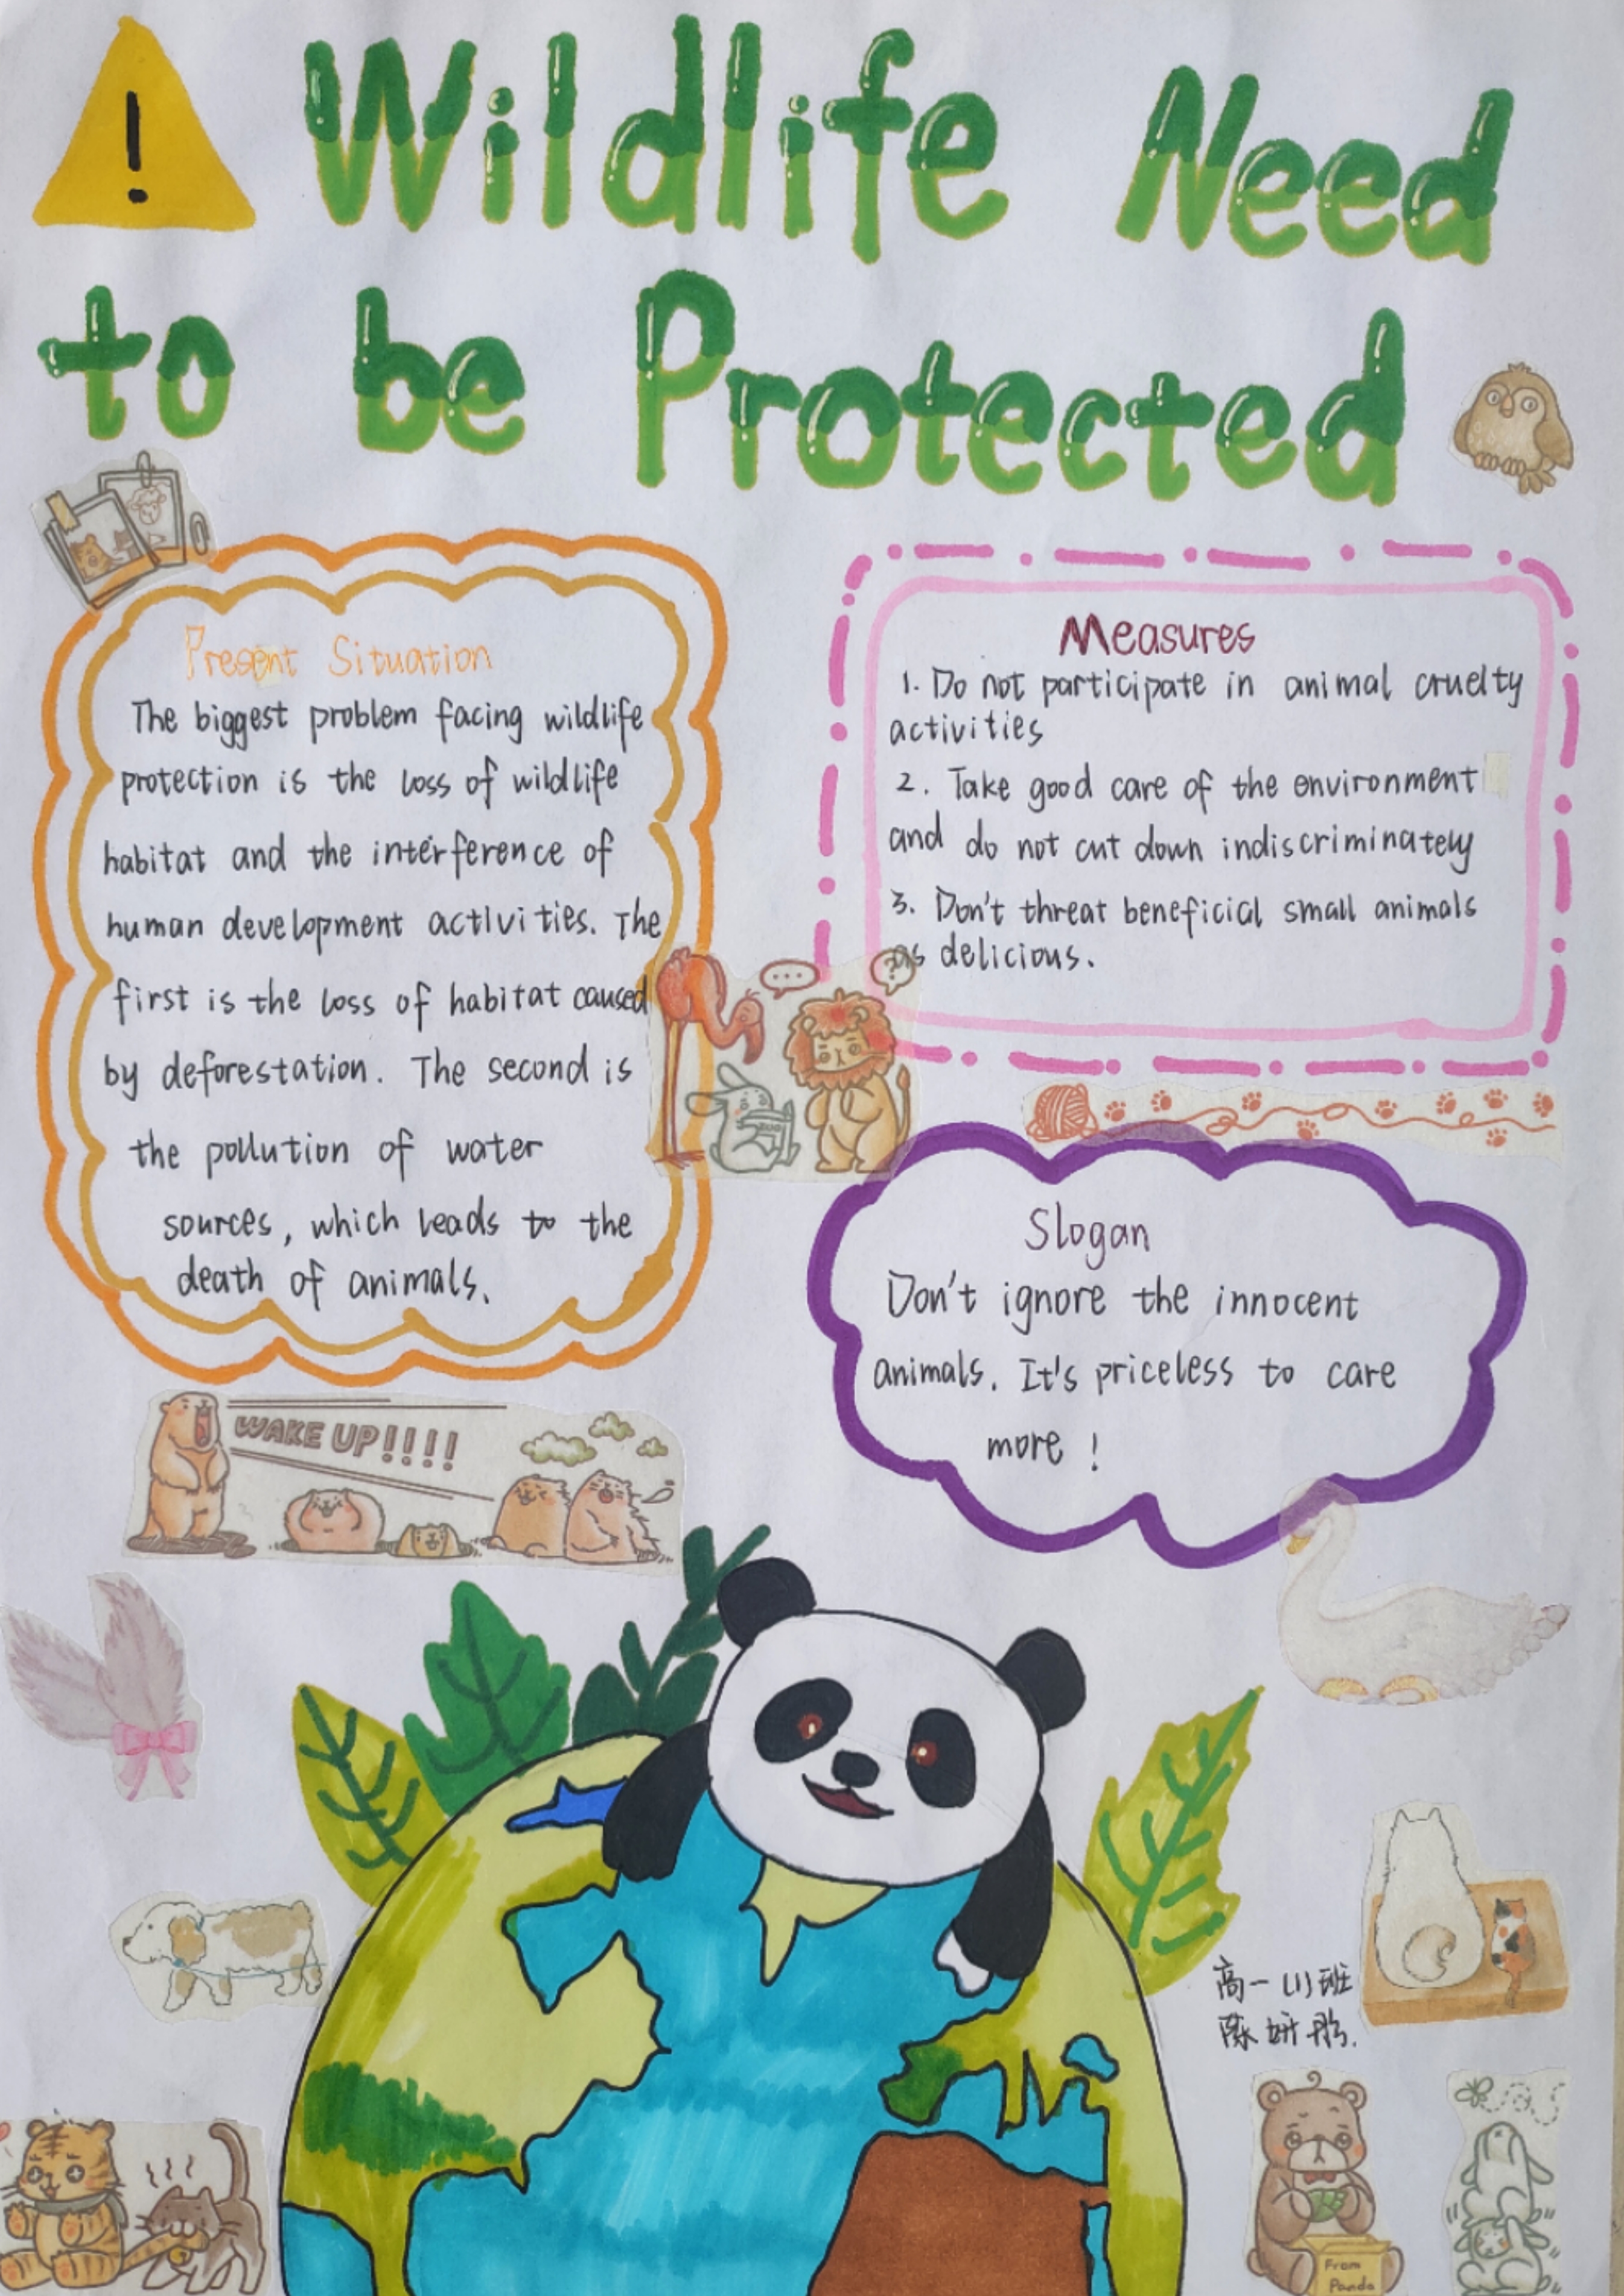 Wildlife Need
to be Protected
Present Situation
The biggest problem facing wildlife
protection is the loss of wildlife
habitat and the interference of
human development activities. The
first is the loss of habitat caused
by deforestation. The second is
the pollution of water
sources, which leads to the
death of animals.
Measures
1. Do not participate in animal cruelty
activities
2. Take good care of the environment
and do not cut down indiscriminately
3. Don't threat beneficial small animals
as delicious.
Slogan
Don't ignore the innocent
animals. It's priceless to care
more !
WAKE UP!!!!
高一(1)班
陈妍彤.
From
Panda